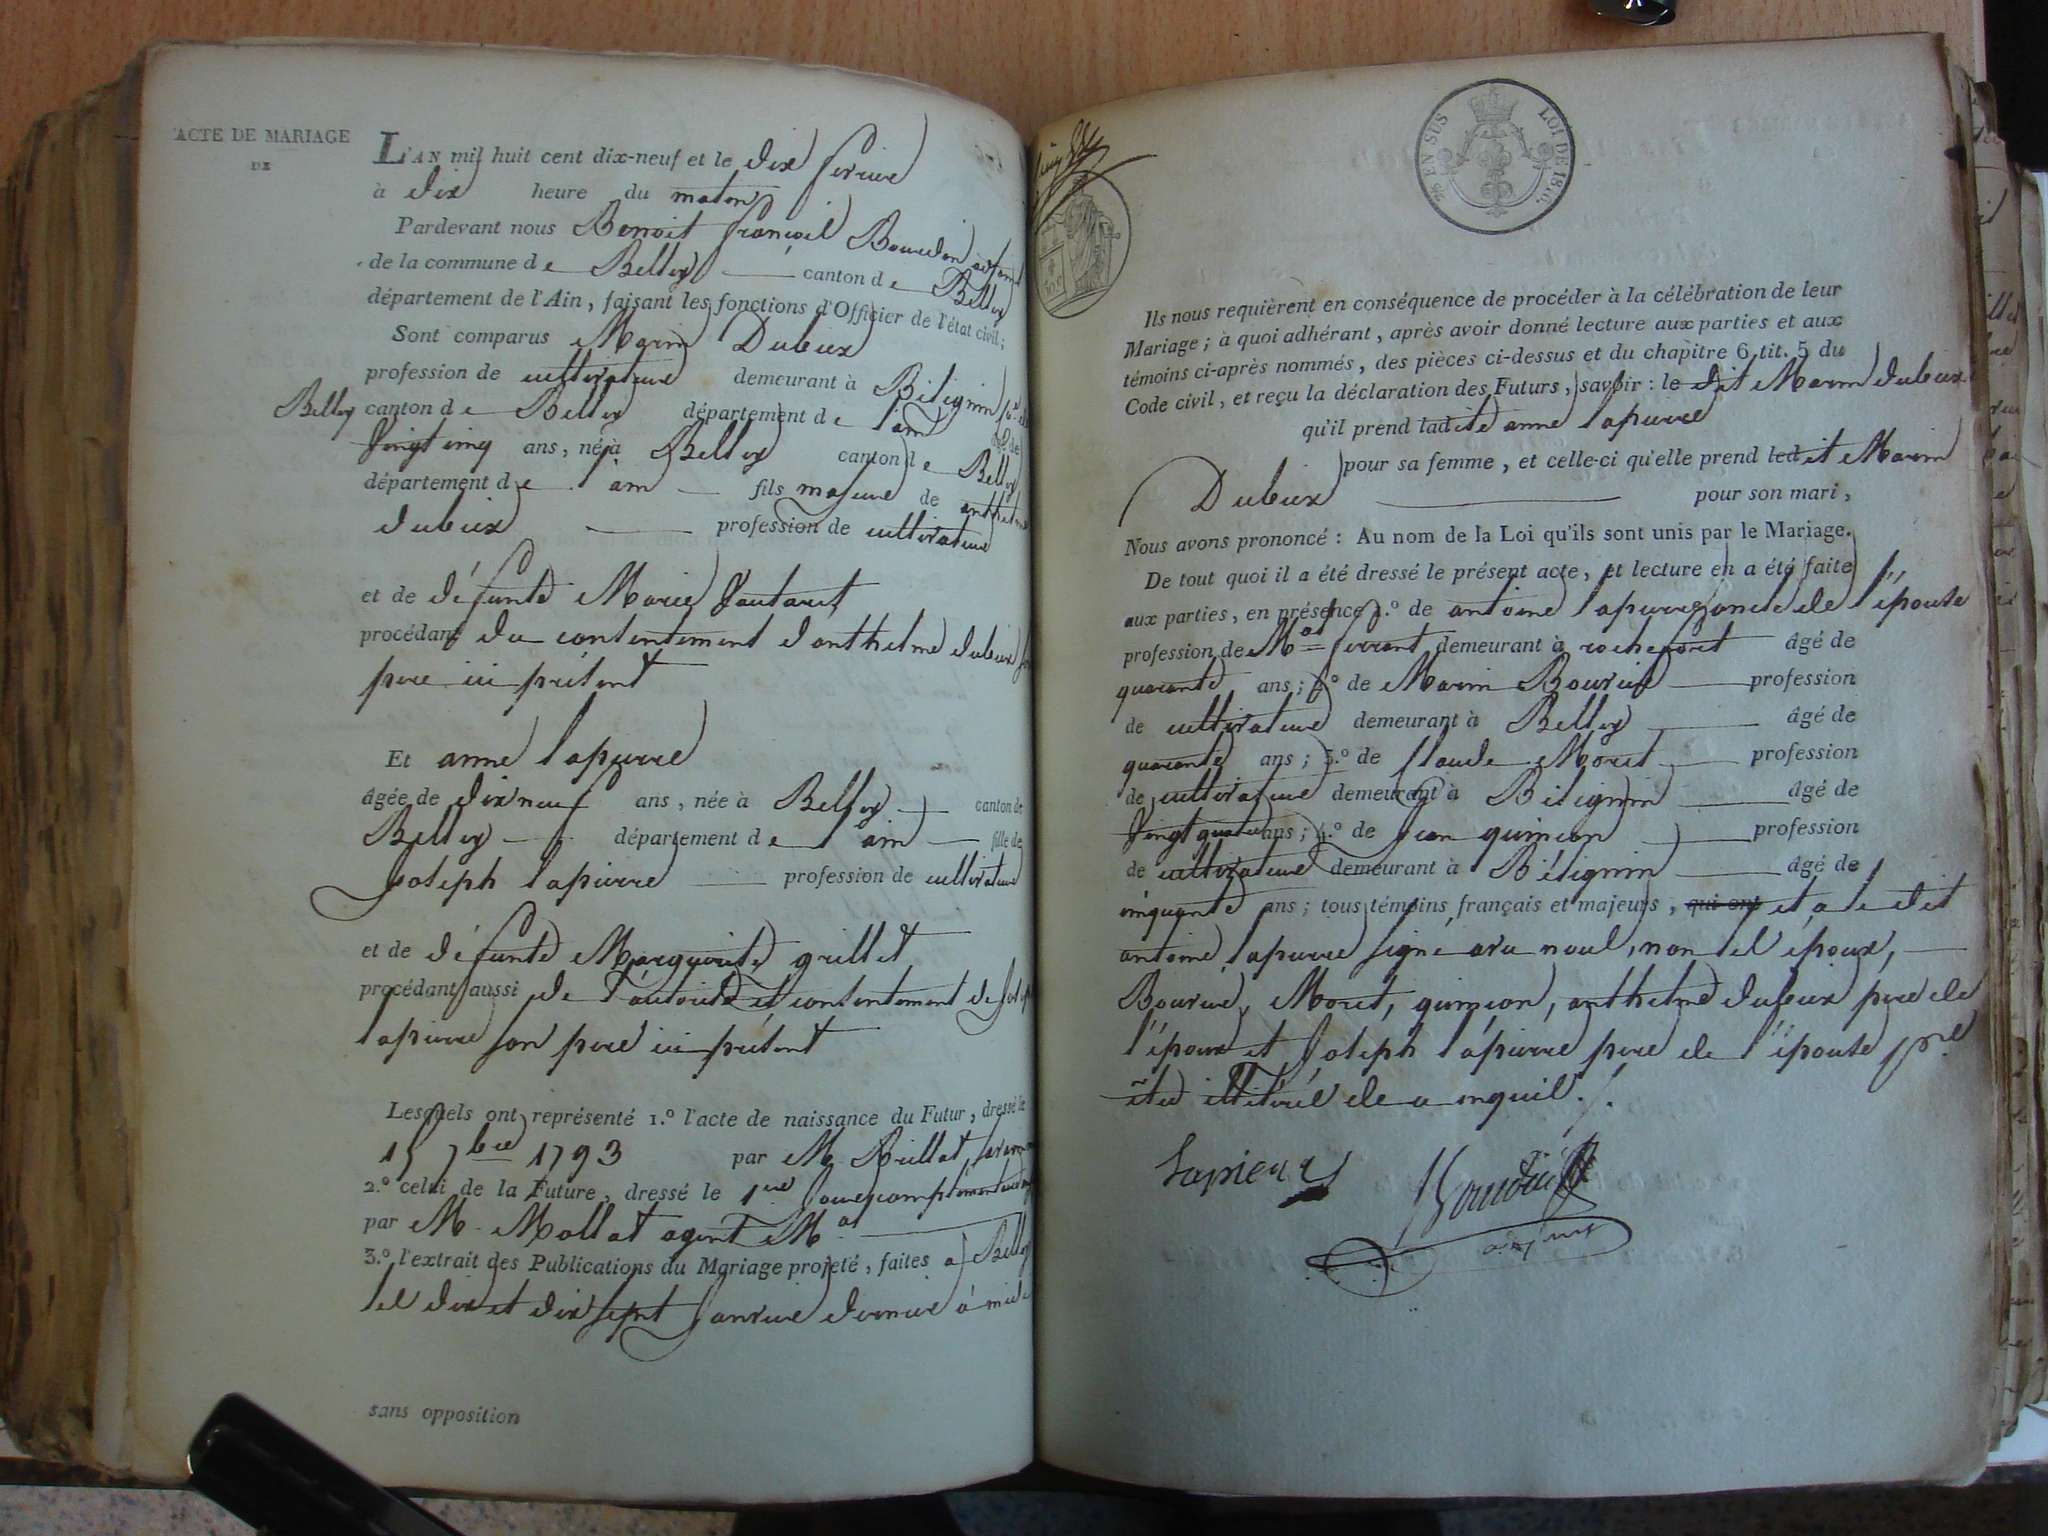 ACTE DE MARIAGE
DE
L'AN mil huit cent dix-neuf et le dix fevrier
à dix heure du matin
Pardevant nous Benoit françois Boudin adjoint
de la commune de Belley canton de Belley
département de l'Ain, faisant les fonctions d'Officier de l'état civil;
Sont comparus Marin Dubeux
profession de cultivateur demeurant à Bilignin
Belley canton de Belley département de l'ain âgé de
Vingt cinq ans, né à Belley canton de Belley
département de l'ain fils majeur de anthelme
dubeux profession de cultivateur
et de défunte Marie Vautaret
procédant du consentement d'anthelme dubeux son
pere ici présent
Et anne lapierre
âgée de dix neuf ans, née à Belley canton de
Belley département de l'ain fille de
Joseph lapierre profession de cultivateur
et de défunte Marguerite grillet
procédant aussi de l'autorité et consentement de Joseph
lapierre son pere ici présent
Lesquels ont représenté 1.º l'acte de naissance du Futur, dressé le
15 7bre 1793 par M. Brillat savarin
2.º celui de la Future, dressé le 1er Jour complémentaire
par M. Mollat agent Mal
3.º l'extrait des Publications du Mariage projeté, faites a Belley
les dix et dix sept Janvier dernier à midi
sans opposition
25 EN SUS LOI DE 1816.
Ils nous requièrent en conséquence de procéder à la célébration de leur
Mariage; à quoi adhérant, après avoir donné lecture aux parties et aux
témoins ci-après nommés, des pièces ci-dessus et du chapitre 6, tit. 5 du
Code civil, et reçu la déclaration des Futurs, savoir: le dit Marin dubeux
qu'il prend ladite anne lapierre
pour sa femme, et celle-ci qu'elle prend ledit Marin
Dubeux pour son mari,
Nous avons prononcé: Au nom de la Loi qu'ils sont unis par le Mariage.
De tout quoi il a été dressé le présent acte, et lecture en a été faite
aux parties, en présence 1.º de antoine lapierre oncle de l'épouse
profession de Mal ferrant demeurant à rochefort âgé de
quarante ans; 2.º de Marin Bouvier profession
de cultivateur demeurant à Belley âgé de
quarante ans; 3.º de Claude Moret profession
de cultivateur demeurant à Bilignin âgé de
Vingt quatre ans; 4.º de jean quinson profession
de cultivateur demeurant à Bélignin âgé de
cinquante ans; tous témoins français et majeurs, qui ont et a le dit
antoine lapierre signé avec nous, non les époux,
Bouvier, Moret, quinson, anthelme dubeux pere de
l'époux et Joseph lapierre pere de l'épouse pr
être illitérés de ce enquis./.
Lapierre Boudin
adjoint